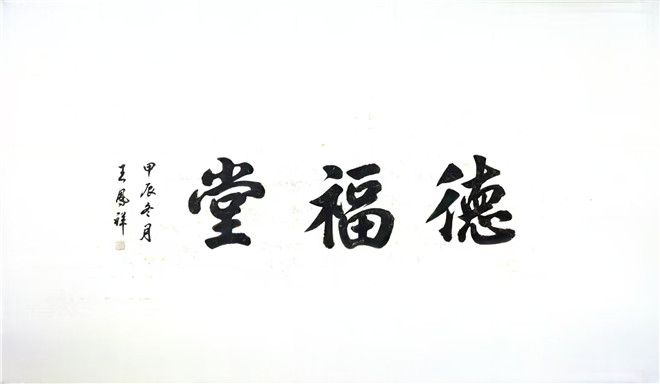 德福堂
甲辰冬月
王凤祥